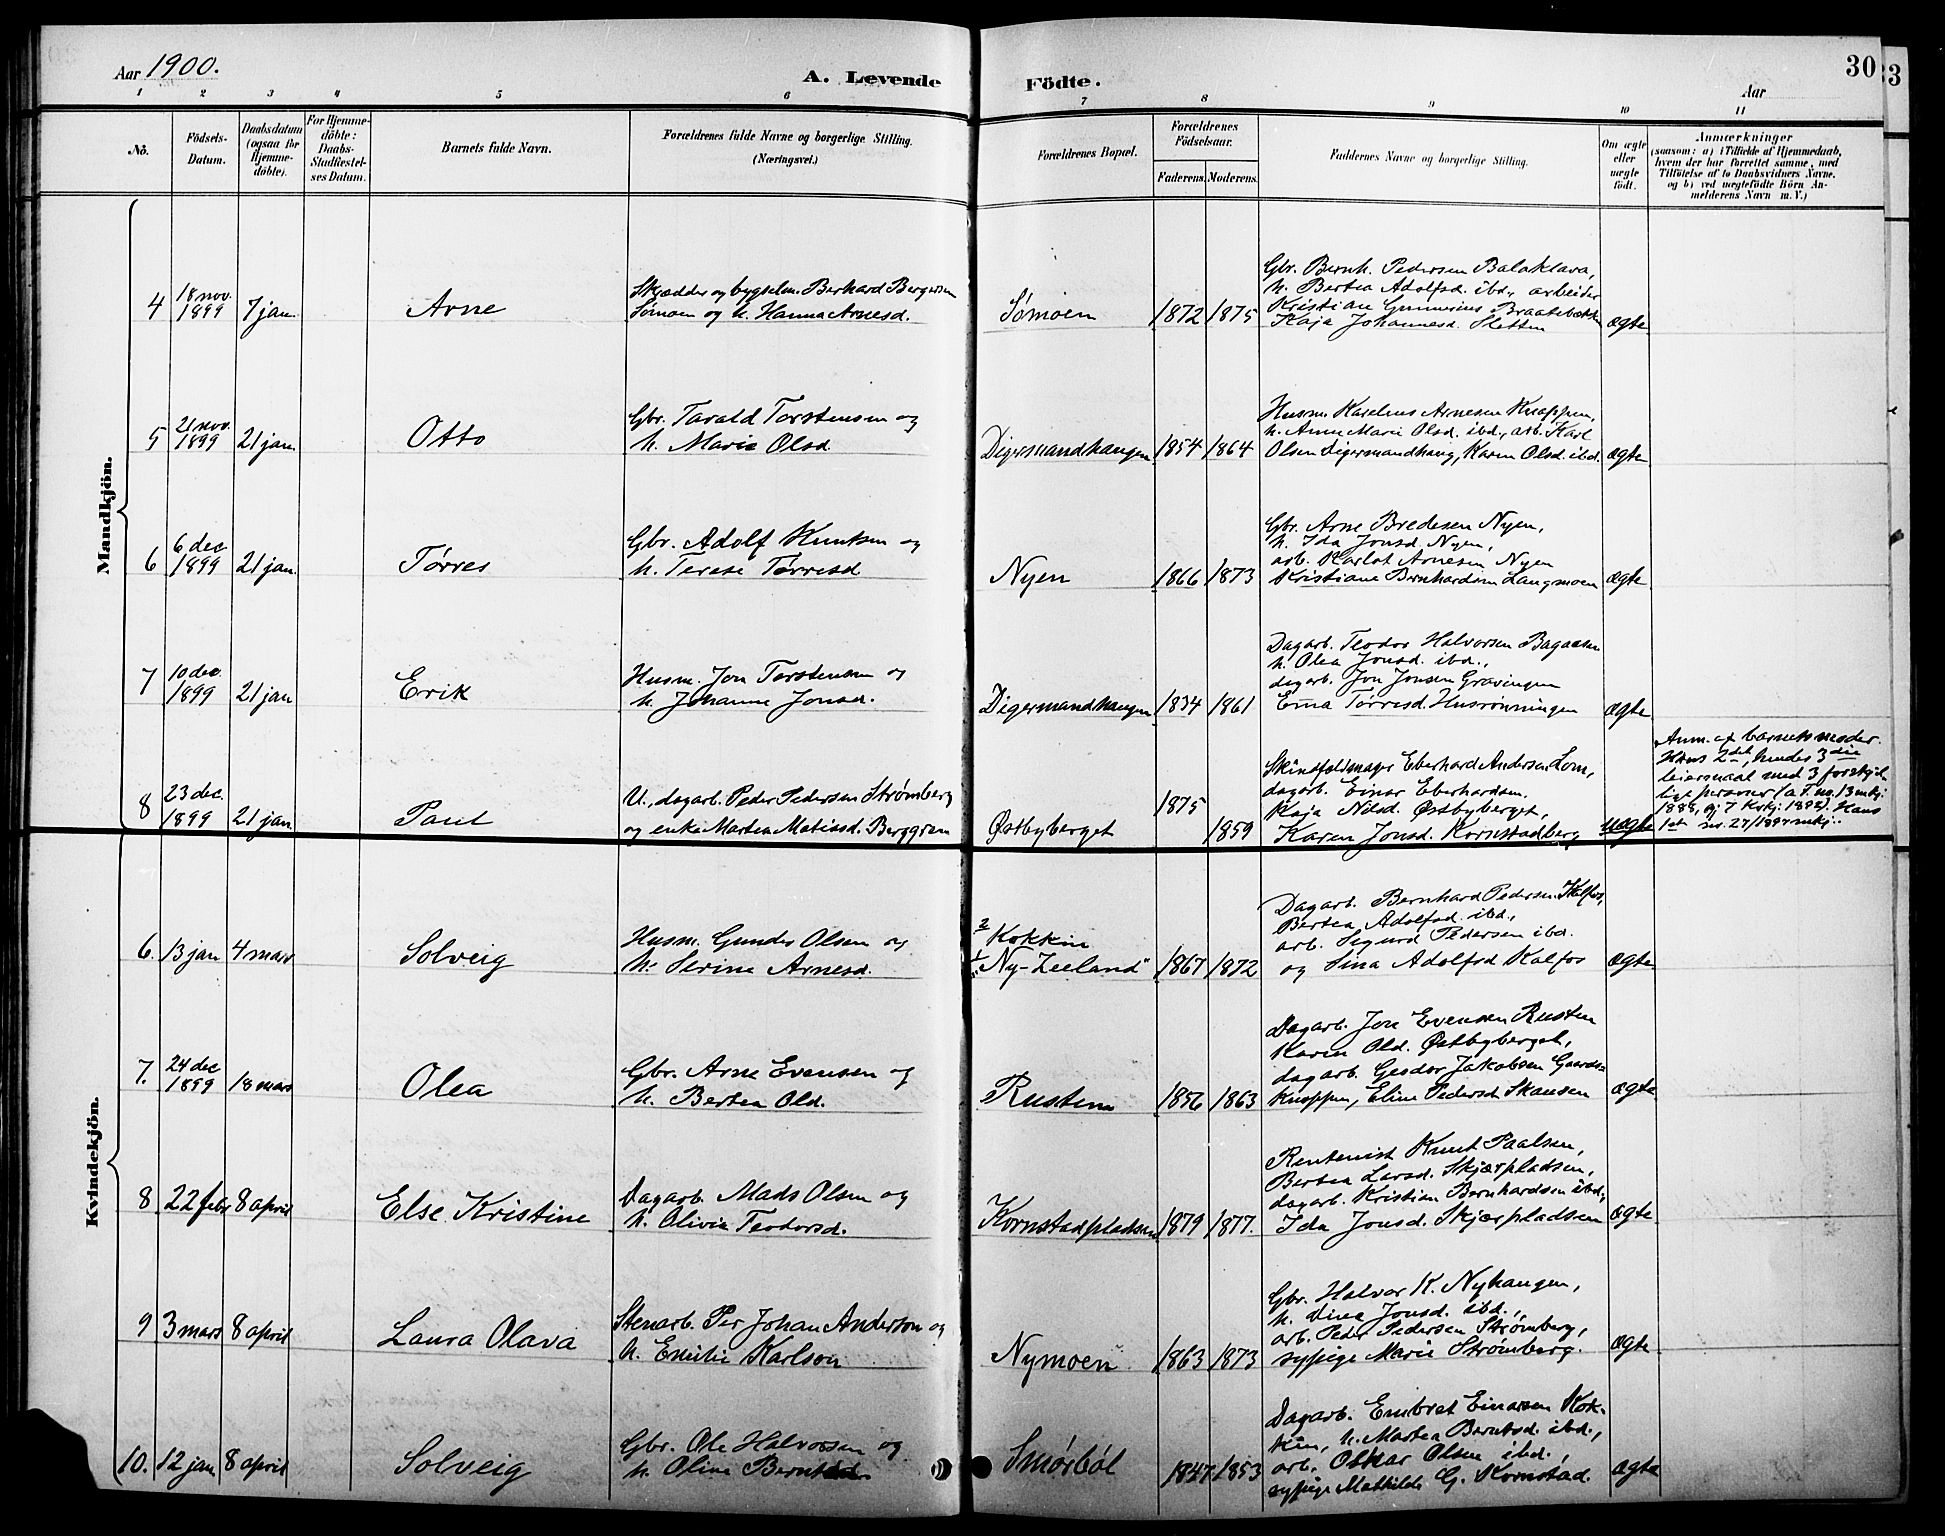 Aar 1900.
A. Levende Födte.
30
33
Aar
1 2 3 4 5 6 7 8 9 10 11
No.
Födsels-Datum.
Daabsdatum (ogsaa for Hjemme-döbte).
For Hjemme-döbte: Daabs-Stadfæstel-ses Datum.
Barnets fulde Navn.
Forældrenes fulde Navne og borgerlige Stilling.
(Næringsvei.)
Forældrenes Bopæl.
Forældrenes Födselsaar.
Faderens. Moderens.
Faddernes Navne og borgerlige Stilling.
Om ægte eller uægte födt.
Anmærkninger
(saasom: a) i Tilfælde af Hjemmedaab,
hvem der har forrettet samme, med
Tilföielse af to Daabsvidners Navne,
og b) ved uægtefödte Börn An-
melderens Navn m. V.)
Mandkjön.
4 18 nov. 1899 7 jan. Arne
Skrædder og bygselm. Berhard Bergersen
Sømoen og h. Hanna Arnesd.
Sømoen 1872 1875
Gbr. Bernh. Pedersen Balaklava,
h. Bertea Adolfsd. ibd., arbeider
Kristian Gunnerius Braatebækken
Kaja Johannesd. Sletten
ægte
5 21 nov. 1899 21 jan. Otto
Gbr. Tarald Torstensen og
h. Marie Olsd.
Digermandhaugen 1854 1864
Husm. Karelius Arnesen Knappen,
h. Anne Marie Olsd. ibd., arb. Karl
Olsen Digermandhaug, Karen Olsd. ibd.
ægte
6 6 dec 1899 21 jan. Tørres
Gbr. Adolf Knutsen og
h. Terese Tørresd
Nyen 1866 1873
Gbr. Arne Bredesen Nyen,
h. Ida Jonsd. Nyen,
arb. Karlot Arnesen Nyen
Kristiane Bernhardine Langmoen
ægte
7 10 dec. 1899 21 jan Erik
Husm. Jon Torstensen og
h. Johanne Jonsd.
Digermandhaugen 1834 1861
Dagarb. Teodor Halvorsen Bagaasen
h. Olea Jonsd. ibd.,
dagarb. Jon Jonsen Gravingen
Ema Tørresd. Husrønningen
ægte
8 23 dec. 1899 21 jan Paul
U., dagarb. Peder Pedersen Strømberg
og enke Martea Matiasd. Berggren
Østbyberget 1875 1859
Skindfeldmager Eberhard Andersen Lom,
dagarb. Einar Eberhardsen,
Kaja Nilsd. Østbyberget,
Karen Jonsd. Kornstadberg
uægte
Anm. af barnets moder.
Hans 2det, hendes 3die
leiermaal med 3 forskjel-
lige personer (a T. no. 13 mkj.
1888, og 7 Kvkj. 1892). Hans
1ste no. 27/1894 mkj.
Kvindekjön.
6. 13 jan 4 mars Solveig
Husm. Gunder Olsen og
h. Serine Arnesd.
2 Kokkin
1 "Ny-Zeeland" 1867 1872
Dagarb. Bernhard Pedersen Kalfos,
Bertea Adolfsd. ibd.,
arb. Segurd Pedersen ibd.
og Sina Adolfsd Kalfos
ægte
7. 24 dec 1899 18 mars Olea
Gbr. Arne Evensen og
h. Bertea Old.
Rusten 1856 1863
Dagarb. Jon Evensen Rusten
Karen Old. Østbyberget,
dagarb. Gesdor Jakobsen
Knappen, Eline Pedersd. Skansen
ægte
8 22 feb. 8 april Else Kristine
Dagarb. Mads Olsen og
h. Olivia Teodorsd.
Kornstadpladsen 1879 1877.
Rentenist Knut Paalsen,
Bertea Larsd. Skjærpladsen,
dagarb. Kristian Bernhardsen ibd.,
Ida Jonsd. Skjærpladsen
ægte
9 3 mars 8 april Laura Olava
Stenarb. Per Johan Anderson og
h. Emilie Karlson
Nymoen 1863 1873
Gbr. Halvor K. Nyhaugen,
h. Dina Jonsd. ibd.,
arb. Peder Pedersen Strømberg,
sypige Marie Strømberg.
ægte
10. 12 jan 8 april Solveig
Gbr. Ole Halvorsen og
h. Oline Berntsd.
Smørbøl 1847 1853
Dagarb. Embret Einarsen Kok-
kin, h. Martea Berntsd. ibd.,
arb. Oskar Olsen ibd.
sypige Mathilde G. Kornstad.
ægte